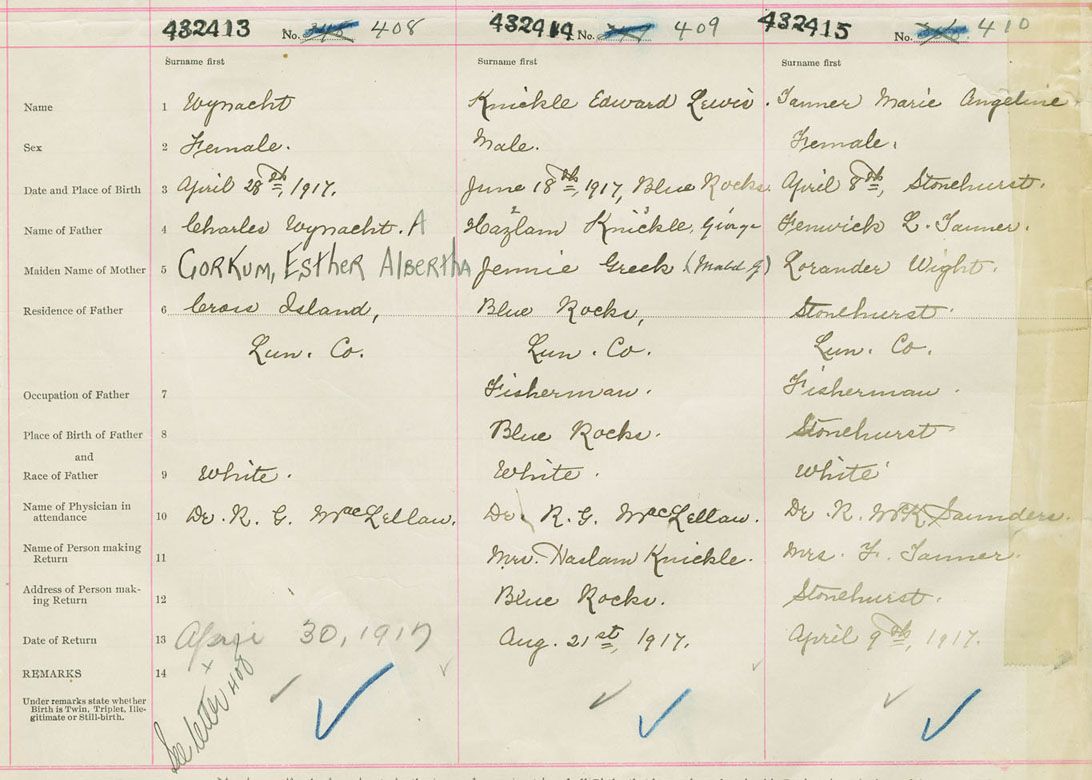 432413 No. 408 432414 No. 409 432415 No. 410
Surname first Surname first Surname first
Name 1 Wynacht Knickle Edward Lewis. Tanner Marie Angeline
Sex 2 Female. Male. Female.
Date and Place of Birth 3 April 28th, 1917. June 18th, 1917, Blue Rocks. April 8th, Stonehurst.
Name of Father 4 Charles Wynacht. A Hazlam Knickle, George Fenwick L. Tanner.
Maiden Name of Mother 5 GORKUM, ESTHER ALBERTHA Jennie Greek (Mald G) Lorander Wight.
Residence of Father 6 Cross Island, Blue Rocks, Stonehurst.
Lun. Co. Lun. Co. Lun. Co.
Occupation of Father 7 Fisherman. Fisherman.
Place of Birth of Father 8 Blue Rocks. Stonehurst
and
Race of Father 9 White. White. White
Name of Physician in
attendance 10 Dr. R. G. MacLellan. Dr. R. G. MacLellan. Dr. R. McK Saunders.
Name of Person making
Return 11 Mrs. Haslam Knickle. Mrs. F. Tanner.
Address of Person mak-
ing Return 12 Blue Rocks. Stonehurst.
Date of Return 13 April 30, 1917 Aug. 21st, 1917. April 9th, 1917.
REMARKS 14
Under remarks state whether
Birth is Twin, Triplet, Ille-
gitimate or Still-birth.
See letter 408